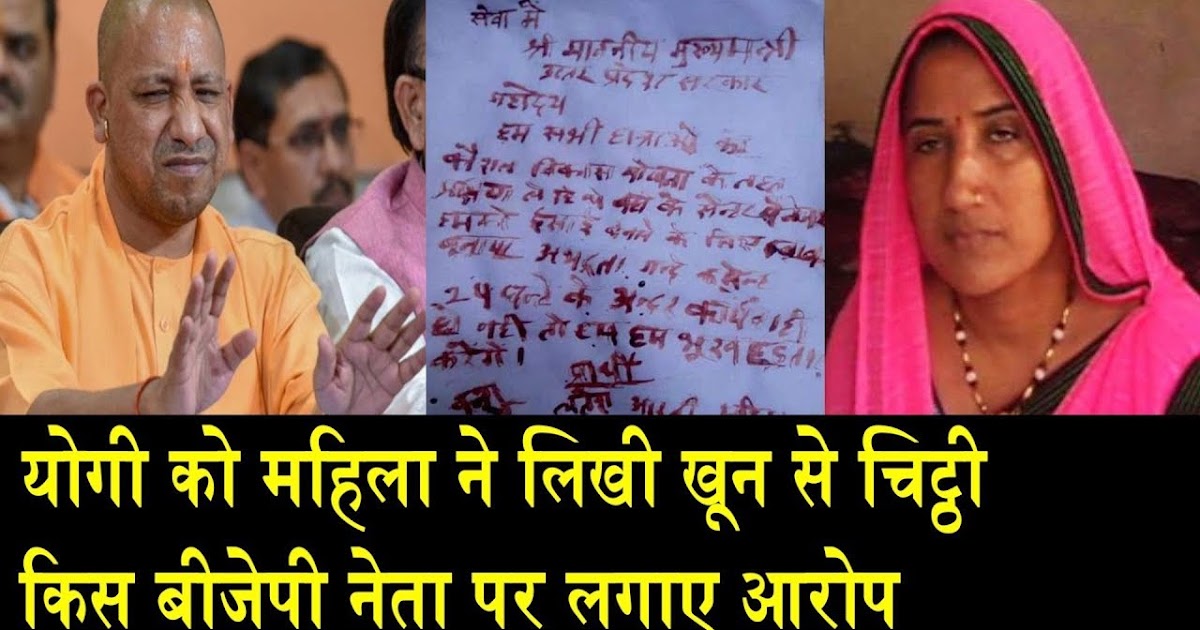 सेवा में
श्री माननीय मुख्यमन्त्री
उत्तर प्रदेश सरकार
महोदय
हम सभी छात्राओ को
विकास योजना के तहत
के सेन्टर
हमको ईसाई बनाने के लिए
अभद्रता गन्दे कमेन्ट
24 घन्टे के अन्दर कार्यवाही
हो नही तो हम हम भूख हड़ताल
करेगे।
प्रार्थी
योगी को महिला ने लिखी खून से चिट्ठी
किस बीजेपी नेता पर लगाए आरोप